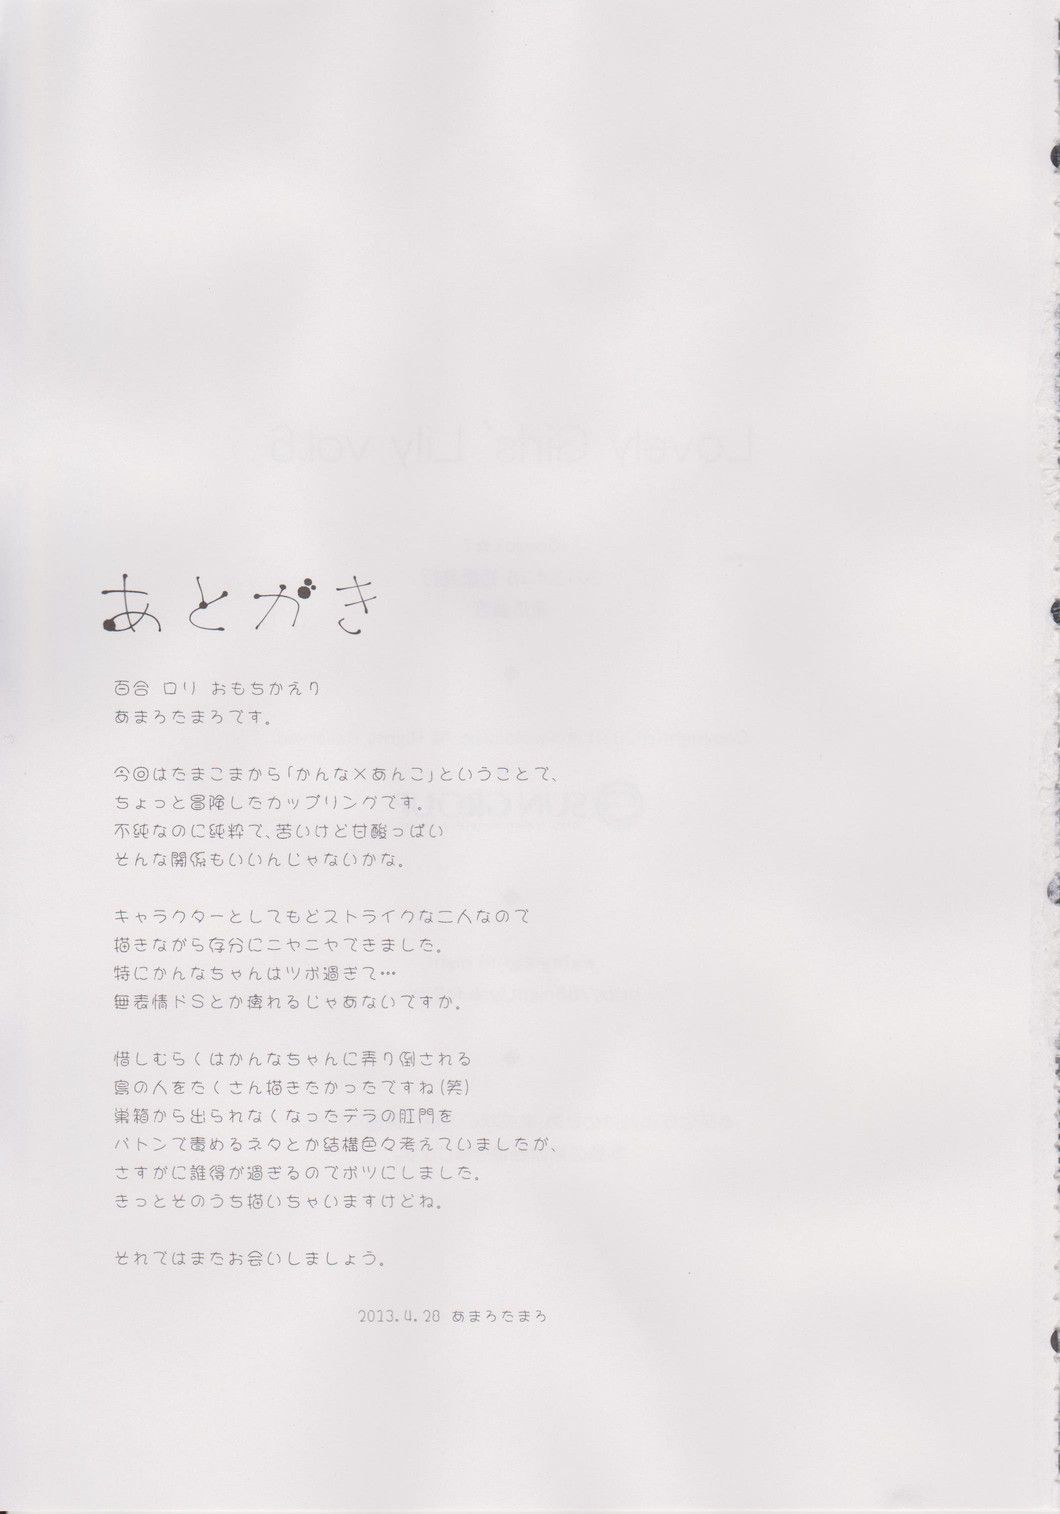 あとがき
百合 ロリ おもちかえり
あまろたまろです。
今回はたまこまから「かんな×あんこ」ということで、
ちょっと冒険したカップリングです。
不純なのに純粋で、苦いけど甘酸っぱい
そんな関係もいいんじゃないかな。
キャラクターとしてもどストライクな二人なので
描きながら存分にニヤニヤできました。
特にかんなちゃんはツボ過ぎて…
無表情ドSとか痺れるじゃあないですか。
惜しむらくはかんなちゃんに弄り倒される
鳥の人をたくさん描きたかったですね(笑)
巣箱から出られなくなったデラの肛門を
バトンで責めるネタとか結構色々考えていましたが、
さすがに誰得が過ぎるのでボツにしました。
きっとそのうち描いちゃいますけどね。
それではまたお会いしましょう。
2013.4.28 あまろたまろ
Lovely Girls' Lily vol.6